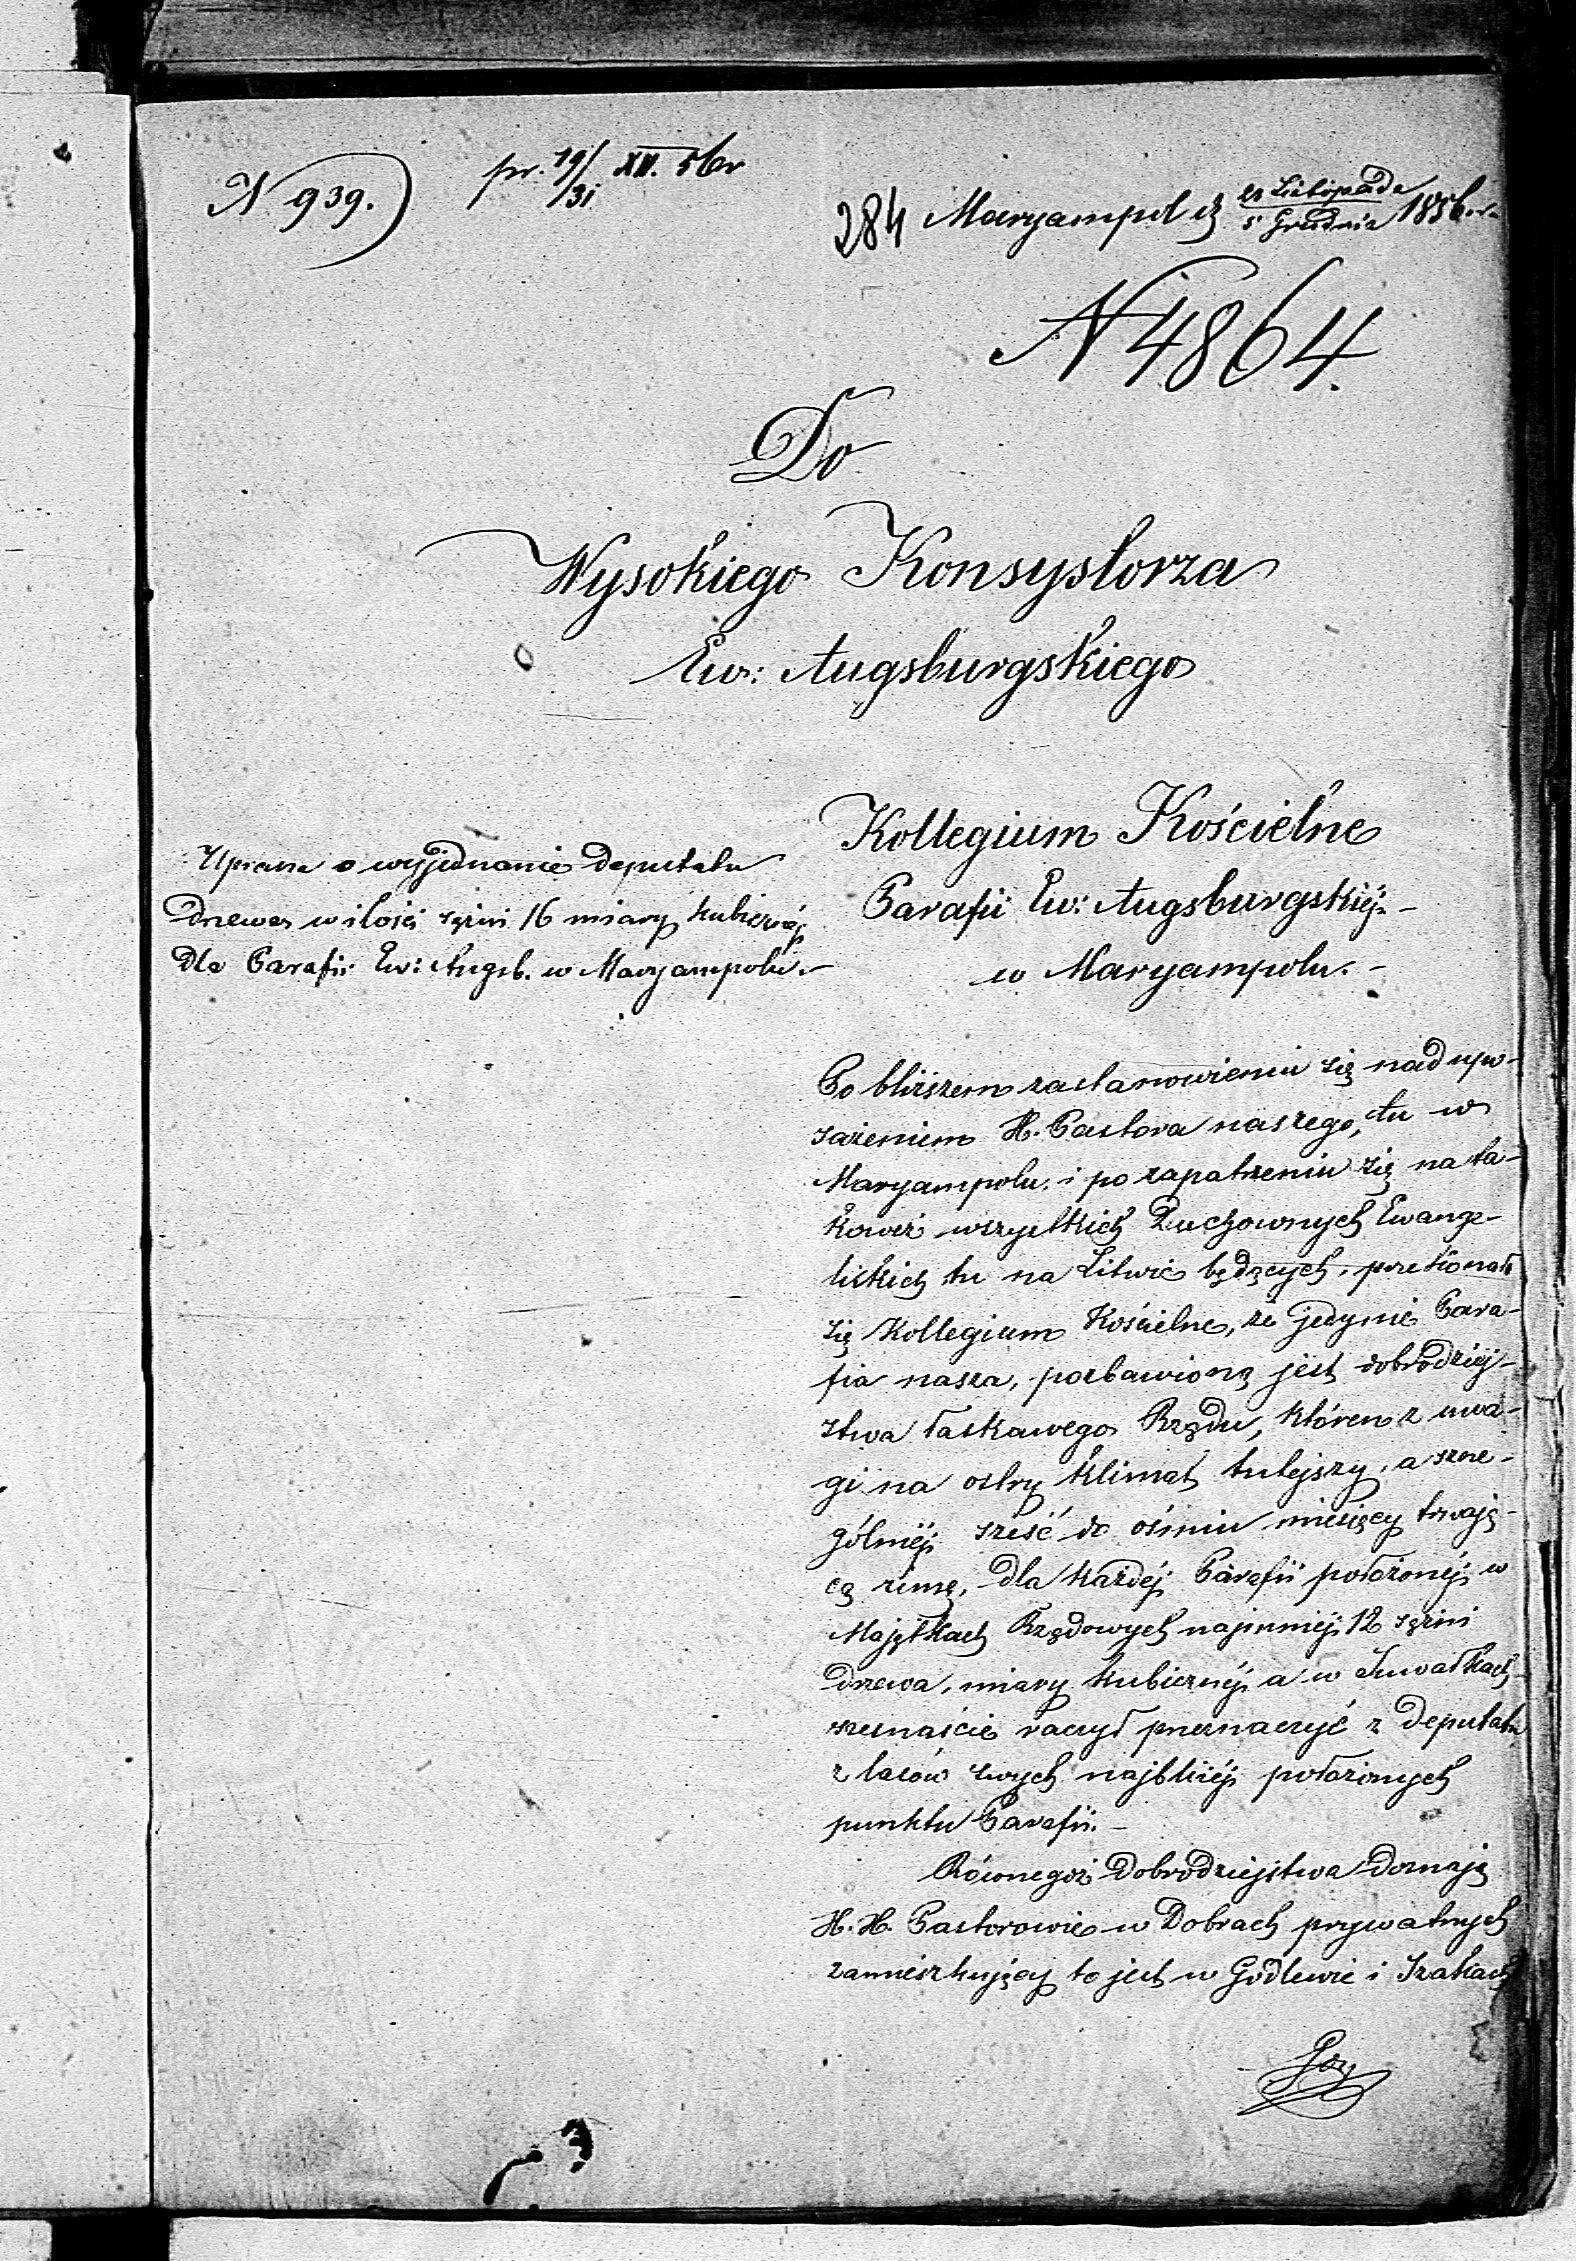 N 939.)
pr. 19/31 XII. 56 r
284 Maryampol d. Listopada / 5 Grudnia 1856. r.
N 4864.
Do
Wysokiego Konsystorza
Ew: Augsburgskiego
Kollegium Kościelne
Parafii Ew: Augsburgskiéj.-
w Maryampolu.-
Uprasza o wyjednanie deputatu
drzewa w ilości sążni 16 miary kubicznéj
dla Parafii Ew: Augsb. w Maryampolu.-
Po bliższem zastanowieniu się nad upo-
sażeniem H. Pastora naszego, tu w
Maryampolu i po zapatrzeniu się na ta-
kowéż wszystkich Duchownych Ewange-
lickich tu na Litwie będących, przekonało
się Kollegium Kościelne, że jedynie Para-
fia nasza, pozbawioną jest dobrodziéj-
stwa łaskawego Rządu, któren z uwa-
gi na ostry klimat tutejszy, a szcze-
gólniéj sześć do ośmiu miesięcy trwają-
cą zimę, dla każdéj Parafii położonéj w
Majątkach Rządowych najmniéj 12 sążni
drzewa, miary kubicznéj a w Suwałkach
szesnaście raczył przeznaczyć z deputatu
z lasów swych najbliżéj położonych
punktu Parafii.-
Równegoż Dobrodziejstwa doznają
H. H. Pastorowie w Dobrach prywatnych
zamieszkujący to jest w Godlewie i Szakach